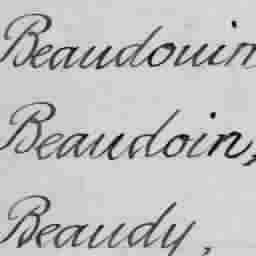 Beaudouin
Beaudoin,
Beaudy,